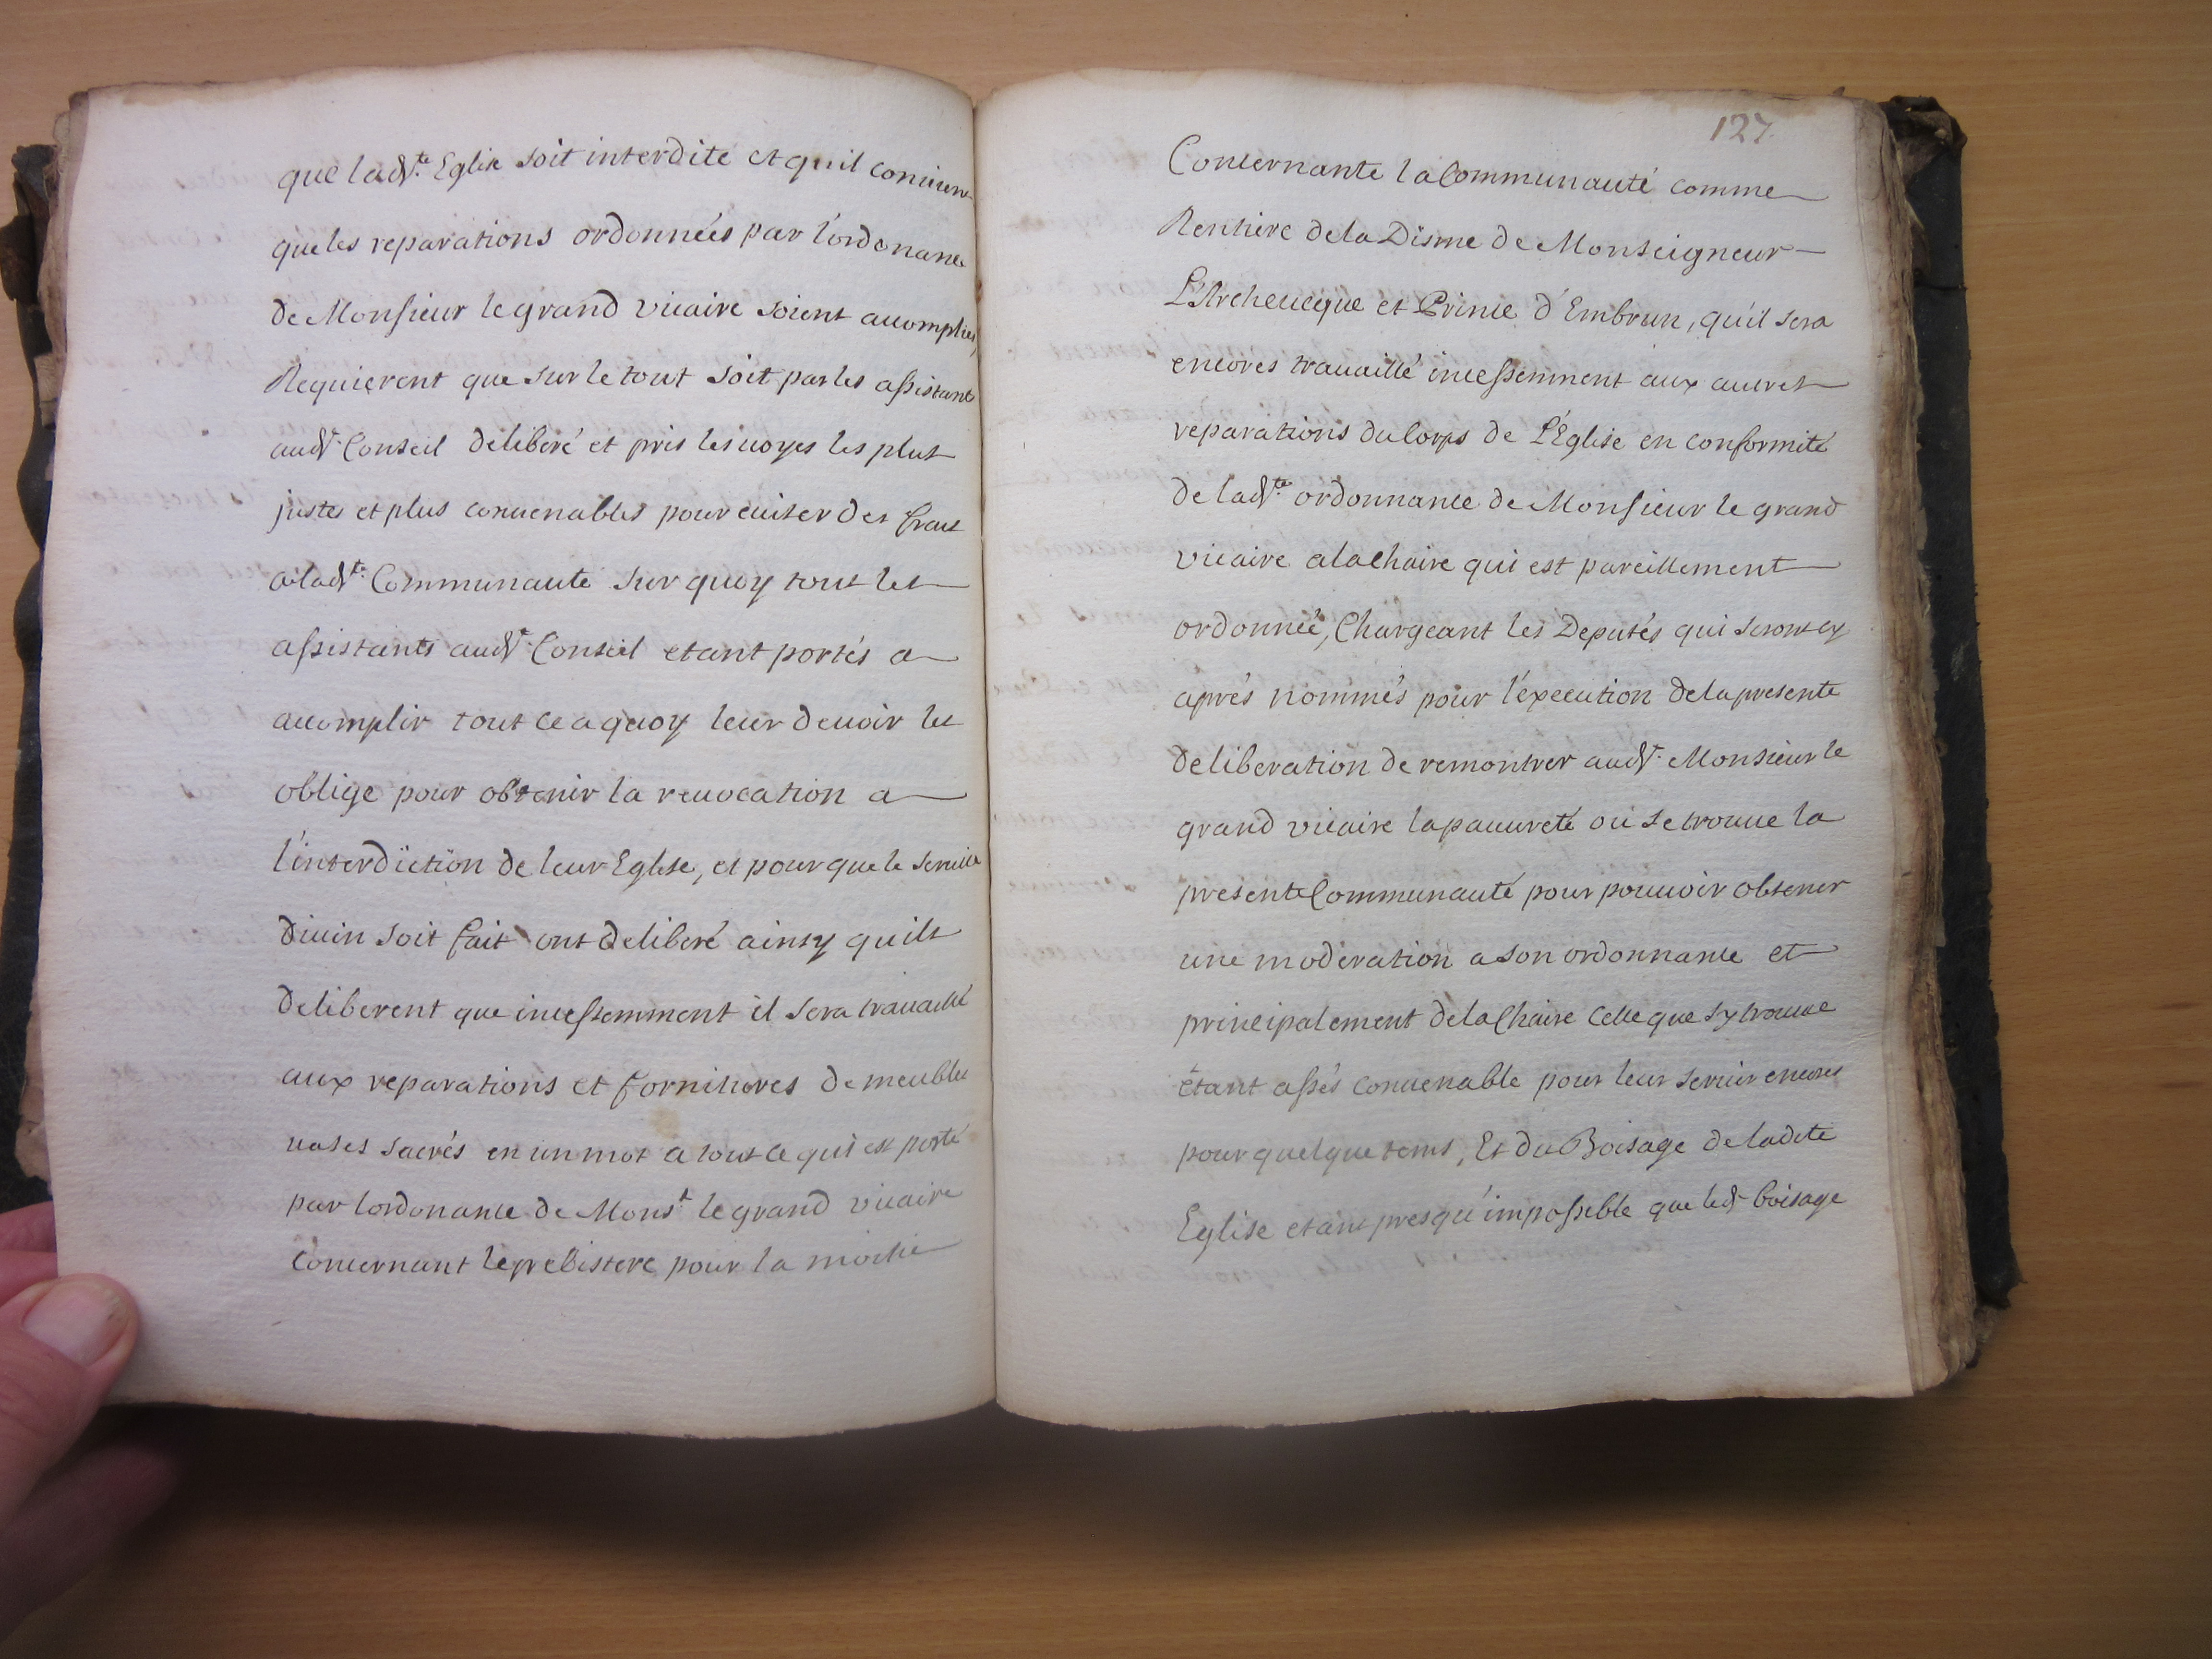 que lad.te Eglise soit interdite et quil convient
que les reparations ordonnées par l'ordonance
de Monsieur le grand vicaire soient accomplies,
Requierent que sur le tout soit par les assistants
aud.t Conseil deliberé et pris les voyes les plus
justes et plus convenables pour eviter des frais
a lad.te Communauté sur quoy tous les
assistants aud.t Conseil etant portés a
accomplir tout ce a quoy leur devoir les
oblige pour obtenir la revocation a
l'interdiction de leur Eglise, et pour que le service
divin soit fait ont deliberé ainsy quils
deliberent que incessemment il sera travaillé
aux reparations et fornitures de meubles
vases sacrés en un mot a tout ce qui est porté
par lordonance de Mons.r le grand vicaire
concernant le prebistere pour la moitié
127.
Concernante la Communauté comme
Rentiere de la Disme de Monseigneur
L'Archeveque et Prince d'Embrun, qu'il sera
encores travaillé incessemment aux autres
reparations du Corps de L'Eglise en conformité
de lad.te ordonnance de Monsieur le grand
vicaire a la chaire qui est pareillement
ordonnée, Chargeant les Deputés qui seront cy
aprés nommés pour l'éxecution de la presente
deliberation de remontrer aud.t Monsieur le
grand vicaire la pauvreté ou se trouve la
presente Communauté pour pouvoir obtenir
une moderation a son ordonnance et
principalement de la Chaire celle que s'y trouve
étant assés convenable pour leur servir encores
pour quelque tems, Et du Boisage de ladite
Eglise etant presqu'impossible que led.t boisage